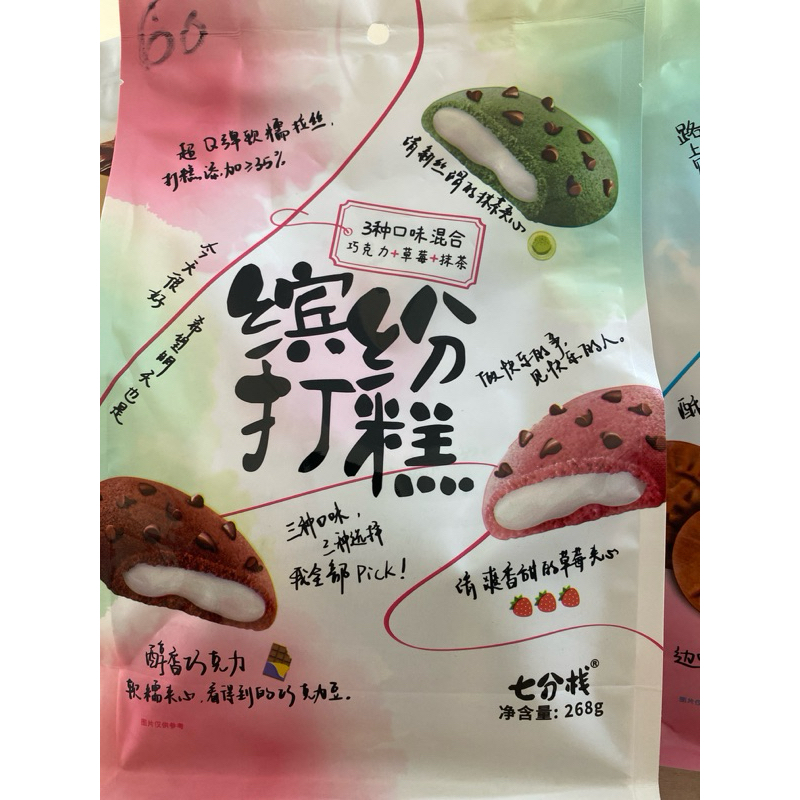 60
超Q弹软糯拉丝，
打糕添加≥35%
清新丝滑的抹茶夹心
3种口味混合
巧克力+草莓+抹茶
今天很好
希望明天也是
缤纷
打糕
做快乐的事，
见快乐的人。
三种口味，
三种选择
我全部Pick！
清爽香甜的草莓夹心
醇香巧克力
软糯夹心，看得到的巧克力豆。
图片仅供参考
七分栈®
净含量：268g
路
上
酥
边